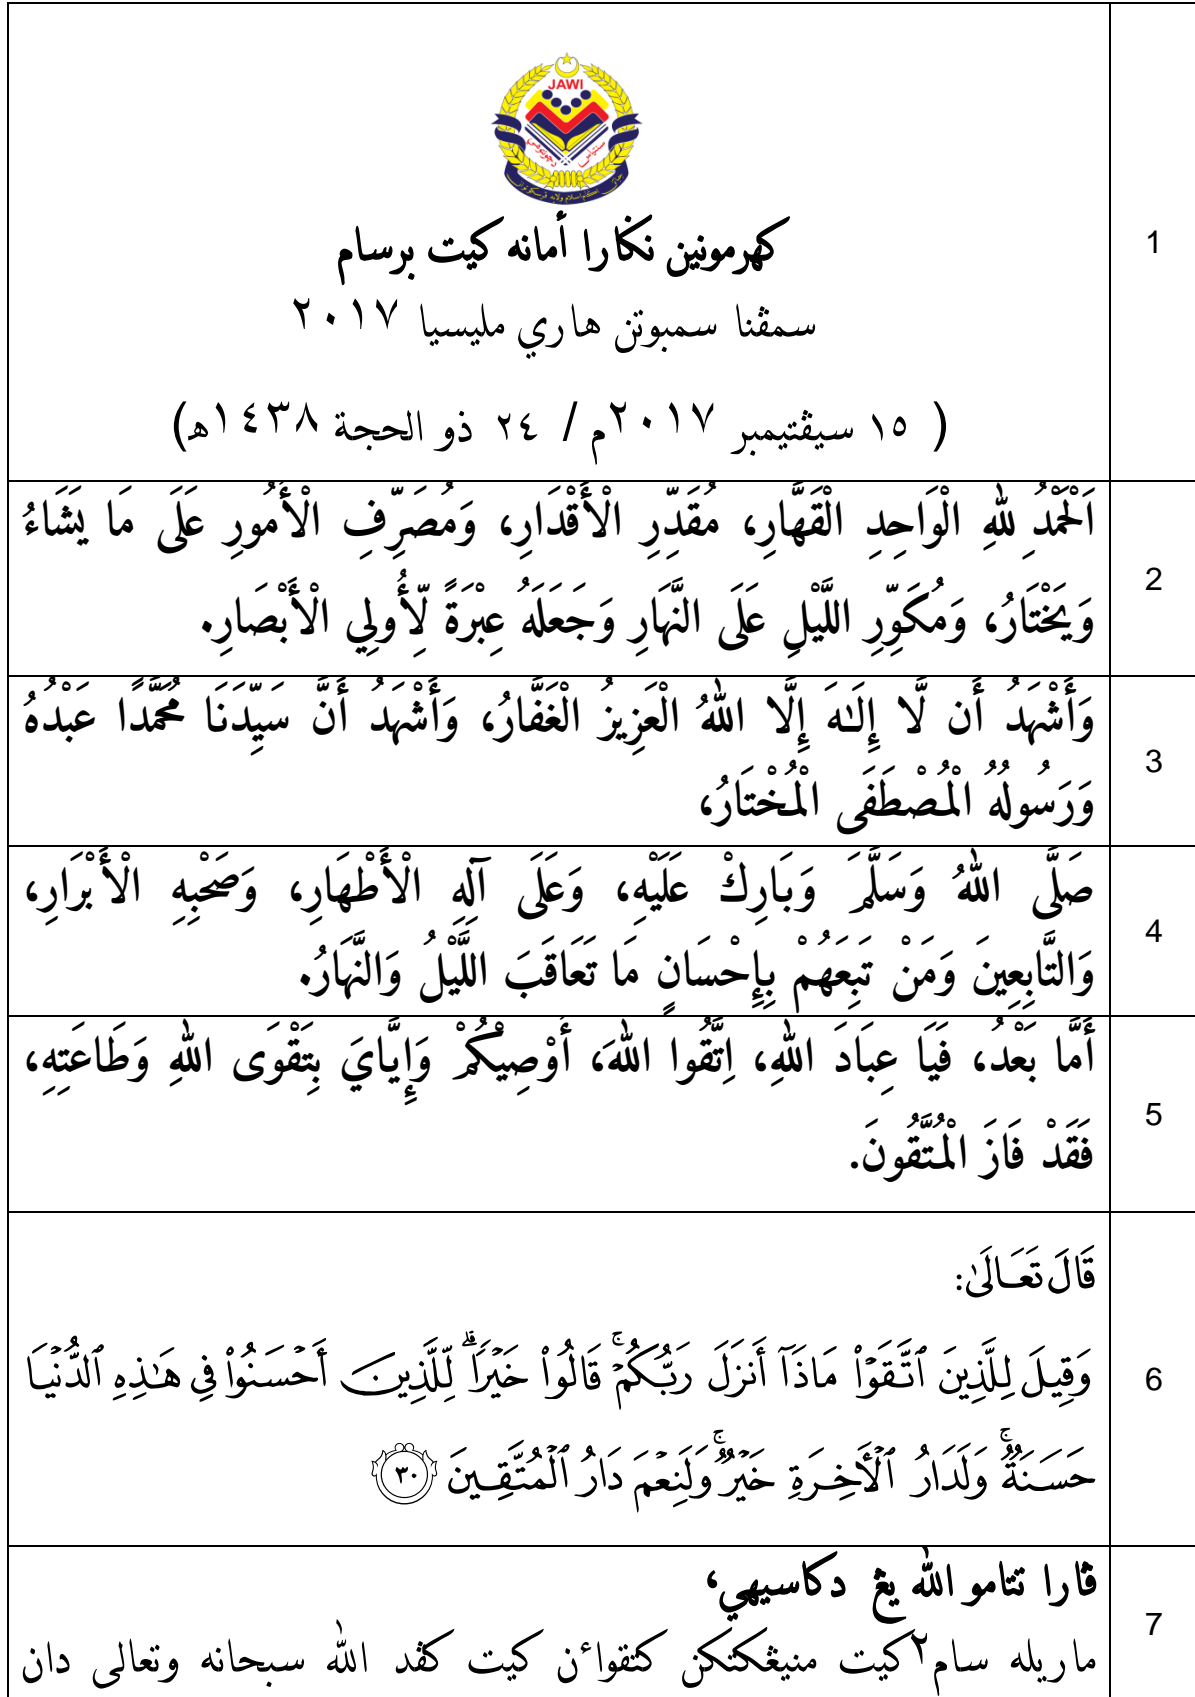 JAWI
كهرمونين نڬارا أمانه كيت برسام
1
سمڤنا سمبوتن هاري مليسيا ٢٠١٧
( ١٥ سيڤتيمبر ٢٠١٧م / ٢٤ ذو الحجة ١٤٣٨ه)
اَلْحَمْدُ لِلهِ الْوَاحِدِ الْقَهَّارِ، مُقَدِّرِ الْأَقْدَارِ، وَمُصَرِّفِ الْأُمُورِ عَلَى مَا يَشَاءُ
2
وَيَخْتَارُ، وَمُكَوِّرِ اللَّيْلِ عَلَى النَّهَارِ وَجَعَلَهُ عِبْرَةً لِّأُولِي الْأَبْصَارِ.
وَأَشْهَدُ أَن لَّا إِلَـٰهَ إِلَّا اللهُ الْعَزِيزُ الْغَفَّارُ، وَأَشْهَدُ أَنَّ سَيِّدَنَا مُحَمَّدًا عَبْدُهُ
3
وَرَسُولُهُ الْمُصْطَفَى الْمُخْتَارُ،
صَلَّى اللهُ وَسَلَّمَ وَبَارِكْ عَلَيْهِ، وَعَلَى آلِهِ الْأَطْهَارِ، وَصَحْبِهِ الْأَبْرَارِ،
4
وَالتَّابِعِينَ وَمَنْ تَبِعَهُمْ بِإِحْسَانٍ مَا تَعَاقَبَ اللَّيْلُ وَالنَّهَارُ.
أَمَّا بَعْدُ، فَيَا عِبَادَ اللهِ، اِتَّقُوا اللهَ، أُوْصِيْكُمْ وَإِيَّايَ بِتَقْوَى اللهِ وَطَاعَتِهِ،
5
فَقَدْ فَازَ الْمُتَّقُونَ.
قَالَ تَعَالَىٰ:
وَقِيلَ لِلَّذِينَ ٱتَّقَوْاْ مَاذَآ أَنزَلَ رَبُّكُمْۚ قَالُواْ خَيْرٗاۗ لِّلَّذِينَ أَحْسَنُواْ فِي هَـٰذِهِ ٱلدُّنْيَا
6
حَسَنَةٞۚ وَلَدَارُ ٱلْأٓخِرَةِ خَيْرٞۚ وَلَنِعْمَ دَارُ ٱلْمُتَّقِينَ ٣٠
ڤارا تتامو الله يڠ دكاسيهي،
7
ماريله سام٢ كيت منيڠكتكن كتقواءن كيت كڤد الله سبحانه وتعالى دان